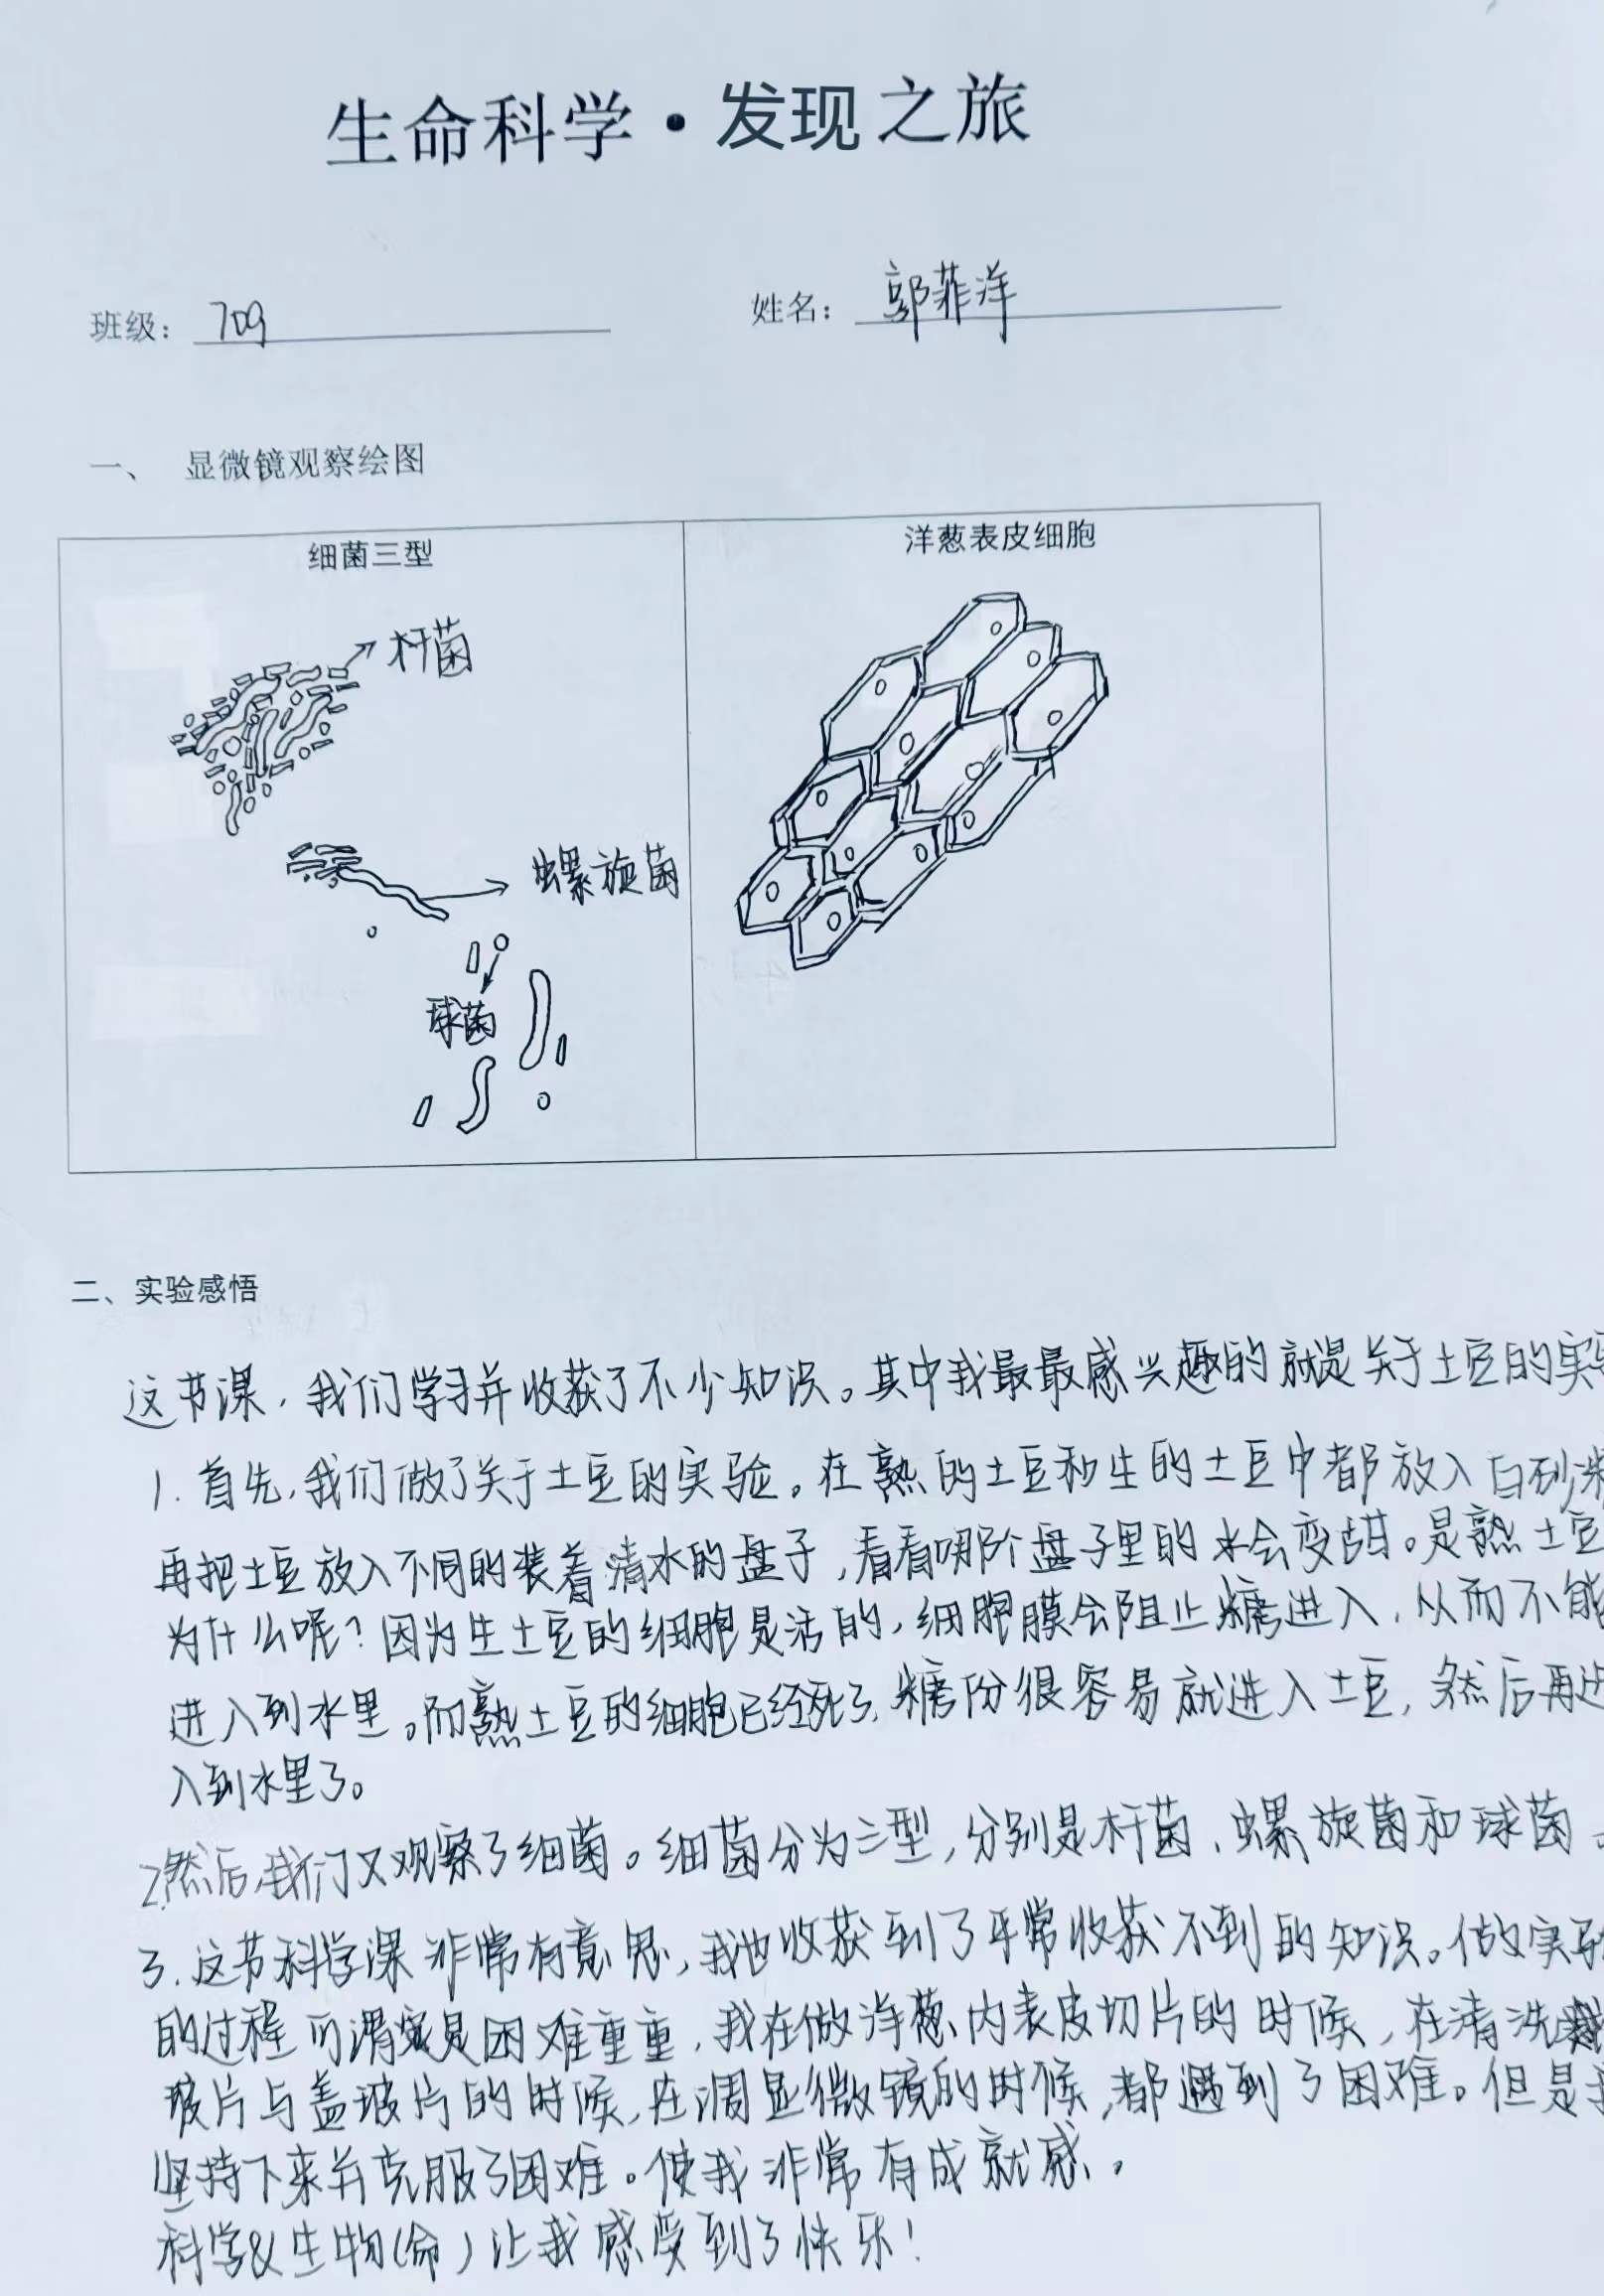 生命科学·发现之旅
班级： 709 姓名： 郭菲洋
一、 显微镜观察绘图
细菌三型 洋葱表皮细胞
杆菌
螺旋菌
球菌
二、实验感悟
这节课，我们学习并收获了不少知识。其中我最最感兴趣的就是关于土豆的实
1. 首先，我们做了关于土豆的实验。在熟的土豆和生的土豆中都放入白砂
再把土豆放入不同的装着清水的盘子，看看哪个盘子里的水会变甜。是熟土豆
为什么呢？因为生土豆的细胞是活的，细胞膜会阻止糖进入，从而不能
进入到水里。而熟土豆的细胞已经死了，糖份很容易就进入土豆，然后再
入到水里了。
2.然后，我们又观察了细菌。细菌分为三型，分别是杆菌、螺旋菌和球菌。
3. 这节科学课非常有意思，我也收获到了平常收获不到的知识。做实
的过程可谓是困难重重，我在做洋葱内表皮切片的时候，在清洗
玻片与盖玻片的时候，在调显微镜的时候，都遇到了困难。但是
坚持下来并克服了困难。使我非常有成就感。
科学&生物（命）让我感受到了快乐！